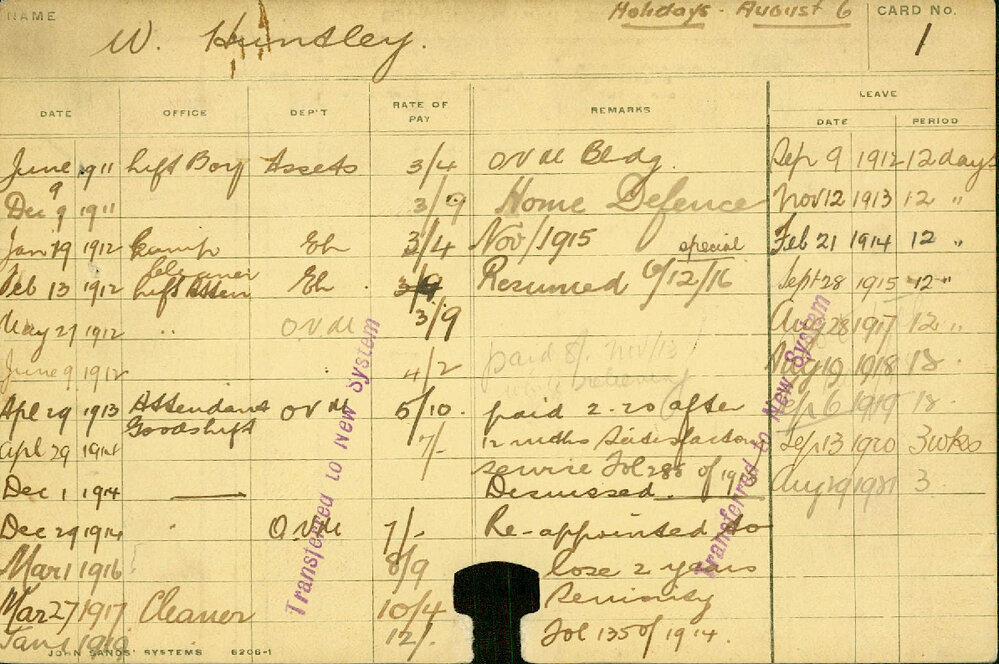 NAME W. Huntley. Holidays - August 6 CARD No. 1
DATE OFFICE DEP'T RATE OF PAY REMARKS LEAVE
DATE PERIOD
June 9 1911 Lift Boy Assets 3/4 OVM Bldg. Sep 9 1912 12 days
Dec 9 1911 3/9 Home Defence Nov 12 1913 12 "
Jan 29 1912 Lamp Cleaner Eh 3/4 Nov/1915 special Feb 21 1914 12 "
Feb 13 1912 Lift Atten Eh. 3/9 Resumed 6/12/16 Sept 28 1915 12 "
May 27 1912 " OVM 3/9 Aug 28 1917 12 "
June 9 1912 4/2 paid 8/- Nov/13 Aug 19 1918 18.
relieving
Apl 29 1913 Attendant OVM 5/10. paid 2.20 after Sep 6 1919 18.
Goodslift
Apl 29 1914 7/- 12 mths Satisfactory Sep 13 1920 3 wks
service Fol 288 of 1913
Dec 1 1914 Dismissed. Aug 29 1921 3
Dec 29 1914 " OVM 7/- Re-appointed to
Mar 1 1916 8/9 lose 2 years
Mar 27 1917 Cleaner 10/4 Seniority
Jan 1 1919 12/- Fol 135 of 1914.
Transferred to New System
Transferred to New System
JOHN SANDS' SYSTEMS 6206-1